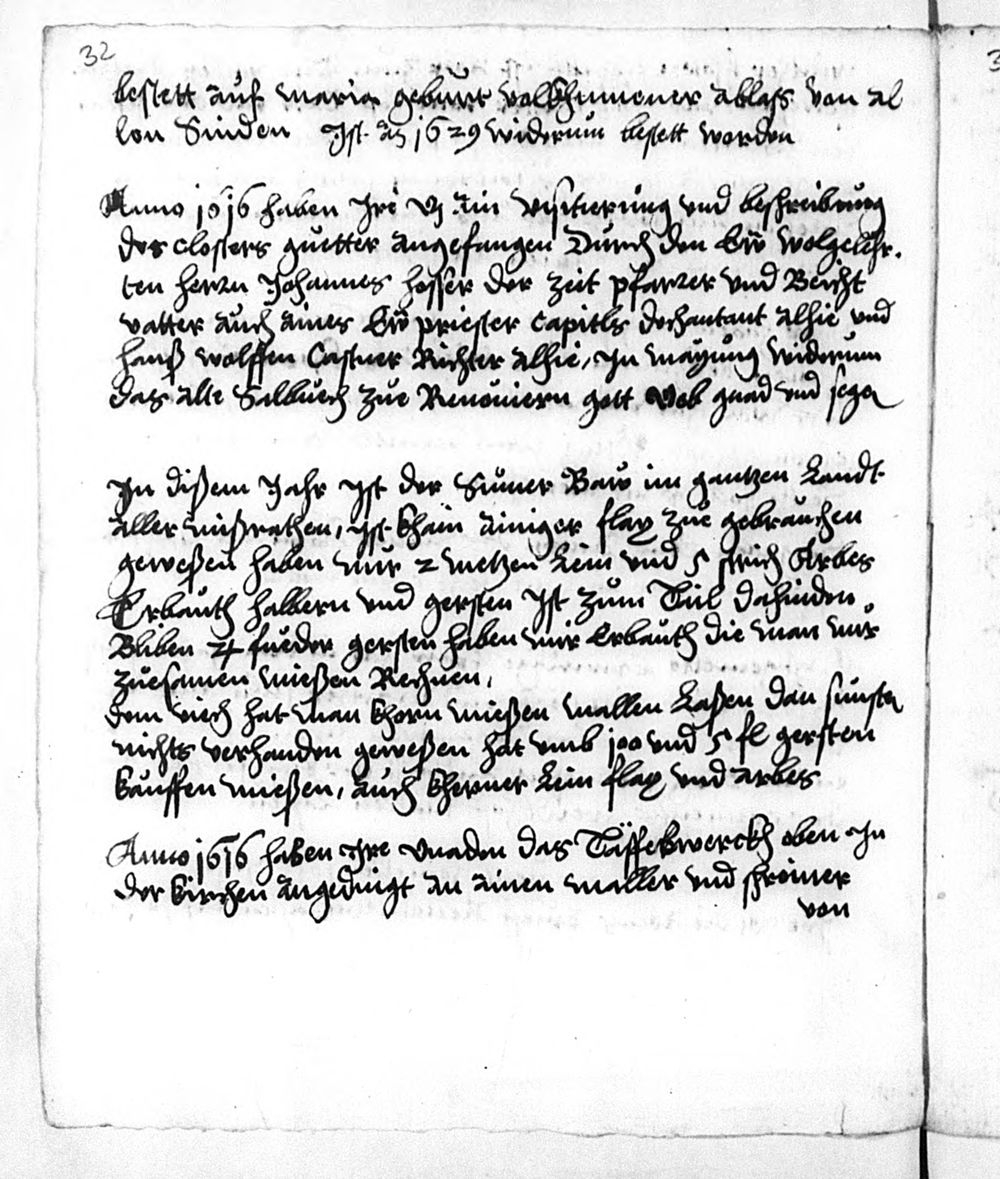 32
bestett auf maria geburt volkhumener ablass von al
len Sinden Ist ao 1629 widerum bestett worden
Anno 1616 haben Ire G ain visitierung und beschreibung
des closters guetter angefangen Durch den Erw wolgelehr.
ten herrn Johannes hosser der zeit pfarrer und Beicht
vatter auch aines Erw priester capitls dechantant alhie und
hanß wolffen Castner Richter alhie, In mayung widerum
das alte Salbuech zue Renouiern gott geb gnad und segen
In dißem Jahr Ist der Sumer Baw im gantzen Landt
aller mißrathen, Ist khain ainiger flax zue gebrauchen
geweßen haben nur 2 metzen Lein und 5 strich Arbes
Erbauth halbern und gersten Ist zum Teil dahinden
Bliben 4 fueder gersten haben mir Erbauth die man nur
zuesamen mießen Rechnen,
dem viech hat man khorn mießen mallen Laßen dan sunsten
nichts verhanden geweßen hat umb 100 und 5 fl gersten
kauffen mießen, auch kherner Lein flax und arbes
Anno 1616 haben Ire Gnaden das Täffelwerckh oben In
der kirchen angedingt an ainen maller und schreiner
von